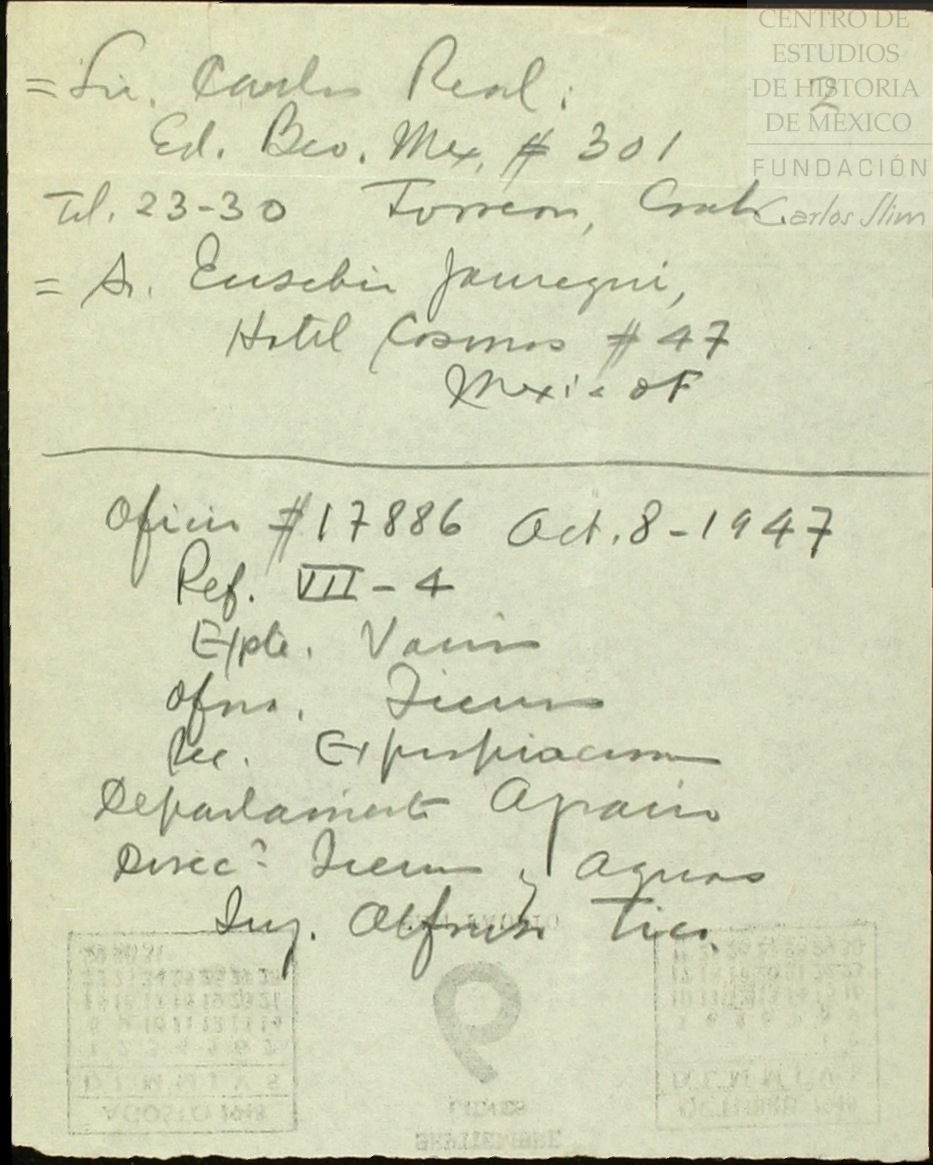 CENTRO DE
ESTUDIOS
DE HISTORIA
DE MÉXICO
FUNDACIÓN
Carlos Slim
2
= Lic. Carlos Real.
Ed. Bco. Mex. # 301
Tel. 23-30 Torreon, Coah
= Sr. Eusebio Jauregui,
Hotel Cosmos # 47
Mexico DF
Oficio #17886 Oct. 8-1947
Ref. VII-4
Expte. Varios
Ofna. Tierras
Sec. Expropiaciones
Departamento Agrario
Direcc. Tierras y Aguas
Ing. Alfonso
9
LUNES
SEPTIEMBRE
AGOSTO 1948
OCTUBRE 1948